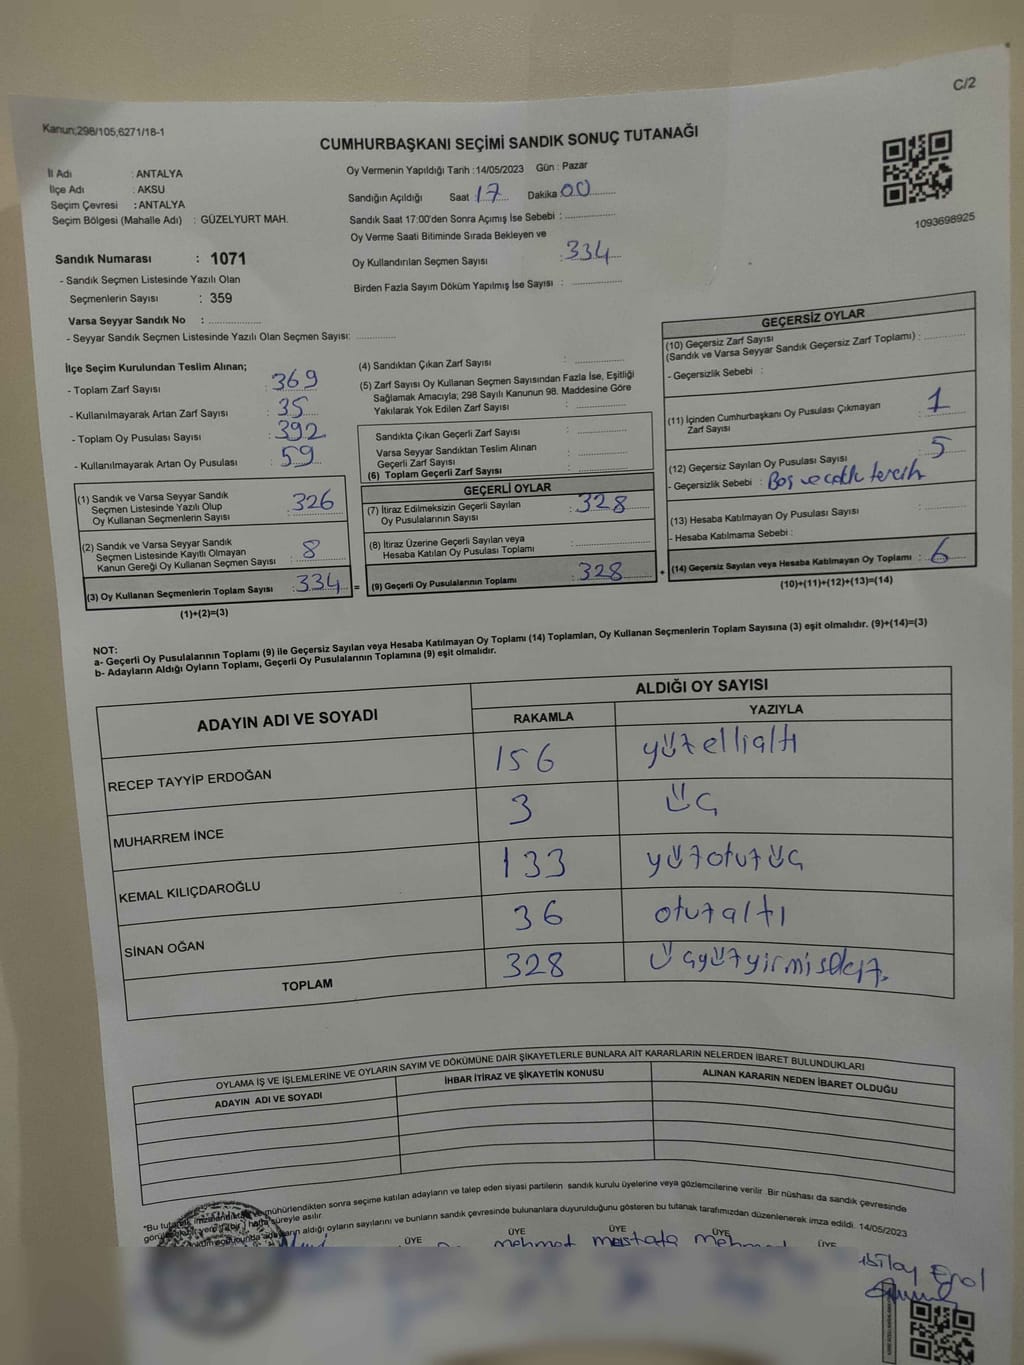 C/2
Kanun;298/105,6271/18-1
CUMHURBAŞKANI SEÇİMİ SANDIK SONUÇ TUTANAĞI
İl Adı : ANTALYA
İlçe Adı : AKSU
Seçim Çevresi : ANTALYA
Seçim Bölgesi (Mahalle Adı) : GÜZELYURT MAH.
Oy Vermenin Yapıldığı Tarih :14/05/2023 Gün : Pazar
Sandığın Açıldığı Saat 17 Dakika 00
Sandık Saat 17:00'den Sonra Açımış İse Sebebi :
Oy Verme Saati Bitiminde Sırada Bekleyen ve
Oy Kullandırılan Seçmen Sayısı : 334
Birden Fazla Sayım Döküm Yapılmış İse Sayısı :
1093698925
Sandık Numarası : 1071
- Sandık Seçmen Listesinde Yazılı Olan
Seçmenlerin Sayısı : 359
Varsa Seyyar Sandık No :
- Seyyar Sandık Seçmen Listesinde Yazılı Olan Seçmen Sayısı:
İlçe Seçim Kurulundan Teslim Alınan;
- Toplam Zarf Sayısı : 369
- Kullanılmayarak Artan Zarf Sayısı : 35
- Toplam Oy Pusulası Sayısı : 392
- Kullanılmayarak Artan Oy Pusulası : 59
(1) Sandık ve Varsa Seyyar Sandık
Seçmen Listesinde Yazılı Olup
Oy Kullanan Seçmenlerin Sayısı : 326
(2) Sandık ve Varsa Seyyar Sandık
Seçmen Listesinde Kayıtlı Olmayan
Kanun Gereği Oy Kullanan Seçmen Sayısı : 8
(3) Oy Kullanan Seçmenlerin Toplam Sayısı : 334 =
(1)+(2)=(3)
(4) Sandıktan Çıkan Zarf Sayısı :
(5) Zarf Sayısı Oy Kullanan Seçmen Sayısından Fazla İse, Eşitliği
Sağlamak Amacıyla; 298 Sayılı Kanunun 98. Maddesine Göre
Yakılarak Yok Edilen Zarf Sayısı :
Sandıkta Çıkan Geçerli Zarf Sayısı :
Varsa Seyyar Sandıktan Teslim Alınan
Geçerli Zarf Sayısı :
(6) Toplam Geçerli Zarf Sayısı :
GEÇERLİ OYLAR
(7) İtiraz Edilmeksizin Geçerli Sayılan
Oy Pusulalarının Sayısı : 328
(8) İtiraz Üzerine Geçerli Sayılan veya
Hesaba Katılan Oy Pusulası Toplamı :
(9) Geçerli Oy Pusulalarının Toplamı : 328 +
GEÇERSİZ OYLAR
(10) Geçersiz Zarf Sayısı
(Sandık ve Varsa Seyyar Sandık Geçersiz Zarf Toplamı) :
- Geçersizlik Sebebi :
(11) İçinden Cumhurbaşkanı Oy Pusulası Çıkmayan
Zarf Sayısı : 1
(12) Geçersiz Sayılan Oy Pusulası Sayısı : 5
- Geçersizlik Sebebi : Boş ve çoklu tercih
(13) Hesaba Katılmayan Oy Pusulası Sayısı :
- Hesaba Katılmama Sebebi :
(14) Geçersiz Sayılan veya Hesaba Katılmayan Oy Toplamı : 6
(10)+(11)+(12)+(13)=(14)
NOT:
a- Geçerli Oy Pusulalarının Toplamı (9) ile Geçersiz Sayılan veya Hesaba Katılmayan Oy Toplamı (14) Toplamları, Oy Kullanan Seçmenlerin Toplam Sayısına (3) eşit olmalıdır. (9)+(14)=(3)
b- Adayların Aldığı Oyların Toplamı, Geçerli Oy Pusulalarının Toplamına (9) eşit olmalıdır.
ADAYIN ADI VE SOYADI
ALDIĞI OY SAYISI
RAKAMLA YAZIYLA
RECEP TAYYİP ERDOĞAN 156 yüzellialtı
MUHARREM İNCE 3 üç
KEMAL KILIÇDAROĞLU 133 yüzotuzüç
SİNAN OĞAN 36 otuzaltı
TOPLAM 328 üçyüzyirmisekiz
OYLAMA İŞ VE İŞLEMLERİNE VE OYLARIN SAYIM VE DÖKÜMÜNE DAİR ŞİKAYETLERLE BUNLARA AİT KARARLARIN NELERDEN İBARET BULUNDUKLARI
ADAYIN ADI VE SOYADI İHBAR İTİRAZ VE ŞİKAYETİN KONUSU ALINAN KARARIN NEDEN İBARET OLDUĞU
mühürlendikten sonra seçime katılan adayların ve talep eden siyasi partilerin sandık kurulu üyelerine veya gözlemcilerine verilir. Bir nüshası da sandık çevresinde
hafta süreyle asılır.
aldığı oyların sayılarını ve bunların sandık çevresinde bulunanlara duyurulduğunu gösteren bu tutanak tarafımızdan düzenlenerek imza edildi. 14/05/2023
ÜYE ÜYE ÜYE ÜYE ÜYE
mehmet mustafa
Erol